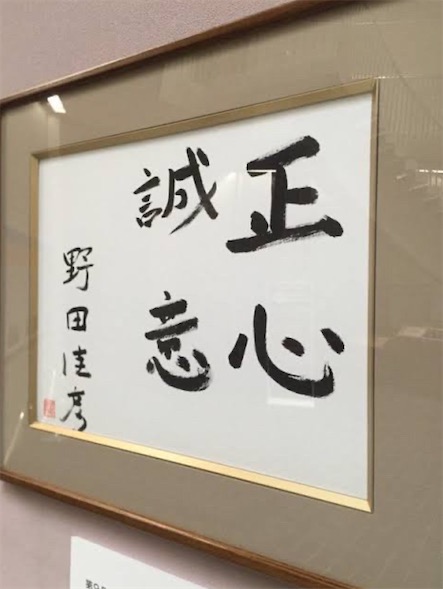 正心
誠意
野田佳彦
第9